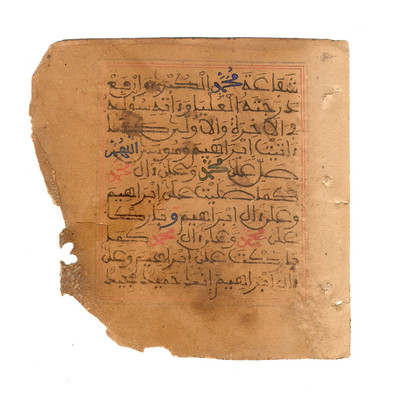 شفاعة محمد الكبرى وارفع
درجته العليا وءاته سوله
في الاخرة والاولى كما
ءاتيت ابراهيم وموسى اللهم
صل على محمد وعلى ءال محمد
كما صليت على ابراهيم
وعلى ءال ابراهيم وبارك
على محمد وعلى ءال محمد كما
باركت على ابراهيم وعلى
ءال ابراهيم انك حميد مجيد